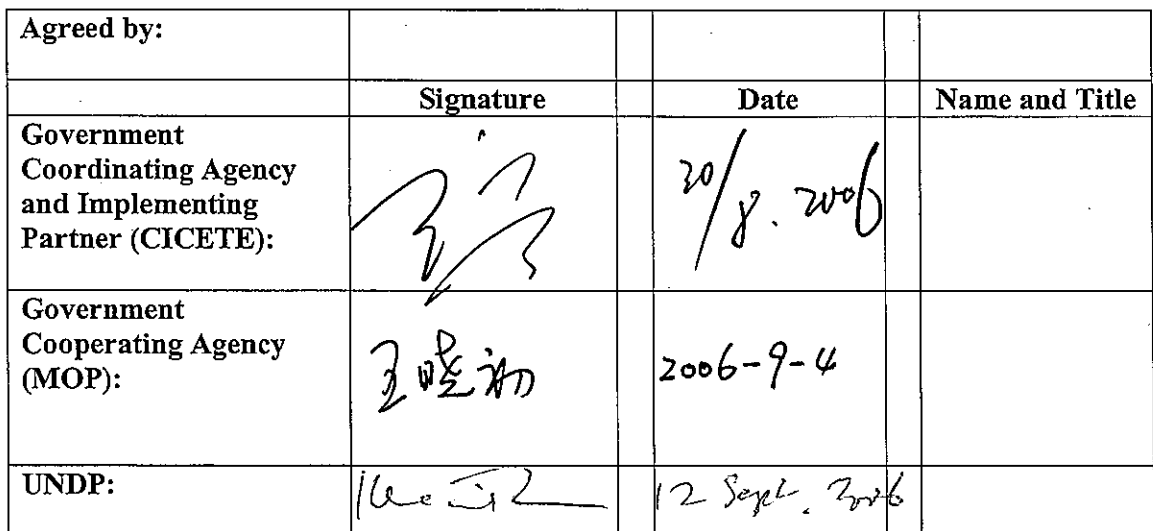 Agreed by:
Signature Date Name and Title
Government
Coordinating Agency
and Implementing
Partner (CICETE):
30/8. 2006
Government
Cooperating Agency
(MOP):
王晓初 2006-9-4
UNDP:
12 Sept. 2006